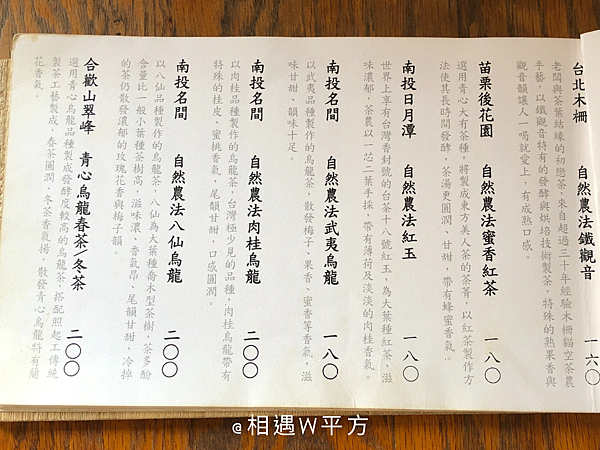 台北木柵 自然農法鐵觀音 一六〇
老闆與茶葉結緣的初戀茶，來自超過三十年經驗木柵貓空茶農
手藝，以鐵觀音特有的發酵與烘培技術製茶，特殊的熟果香與
觀音韻讓人一喝就愛上，有成熟口感。
苗栗後花園 自然農法蜜香紅茶 一八〇
選用青心大冇茶種，將製成東方美人茶的茶菁，以紅茶製作方
法使其長時間發酵，茶湯更圓潤、甘甜，帶有蜂蜜香氣。
南投日月潭 自然農法紅玉 一八〇
世界上享有台灣香封號的台茶十八號紅玉，為大葉種紅茶，滋
味濃郁，茶農以一芯二葉手採，帶有薄荷及淡淡的肉桂香氣。
南投名間 自然農法武夷烏龍 一八〇
以武夷品種製作的烏龍茶，散發梅子、果香、蜜香等香氣，滋
味甘甜、韻味十足。
南投名間 自然農法肉桂烏龍 二〇〇
以肉桂品種製作的烏龍茶，台灣極少見的品種，肉桂烏龍帶有
特殊的桂皮、蜜桃香氣，尾韻甘甜，口感圓潤。
南投名間 自然農法八仙烏龍 二〇〇
以八仙品種製作的烏龍茶，八仙為大葉種喬木型茶樹，茶多酚
含量比一般小葉種茶樹高，滋味濃、香氣昂、尾韻甘甜，冷掉
的茶仍散發濃郁的玫瑰花香與梅子韻。
合歡山翠峰 青心烏龍春茶/冬茶 二〇〇
選用青心烏龍品種製成發酵度較高的烏龍茶，搭配照起工傳統
製茶工藝製成，春茶圓潤、冬茶香氣揚，散發青心烏龍特有蘭
花香氣。
@相遇W平方